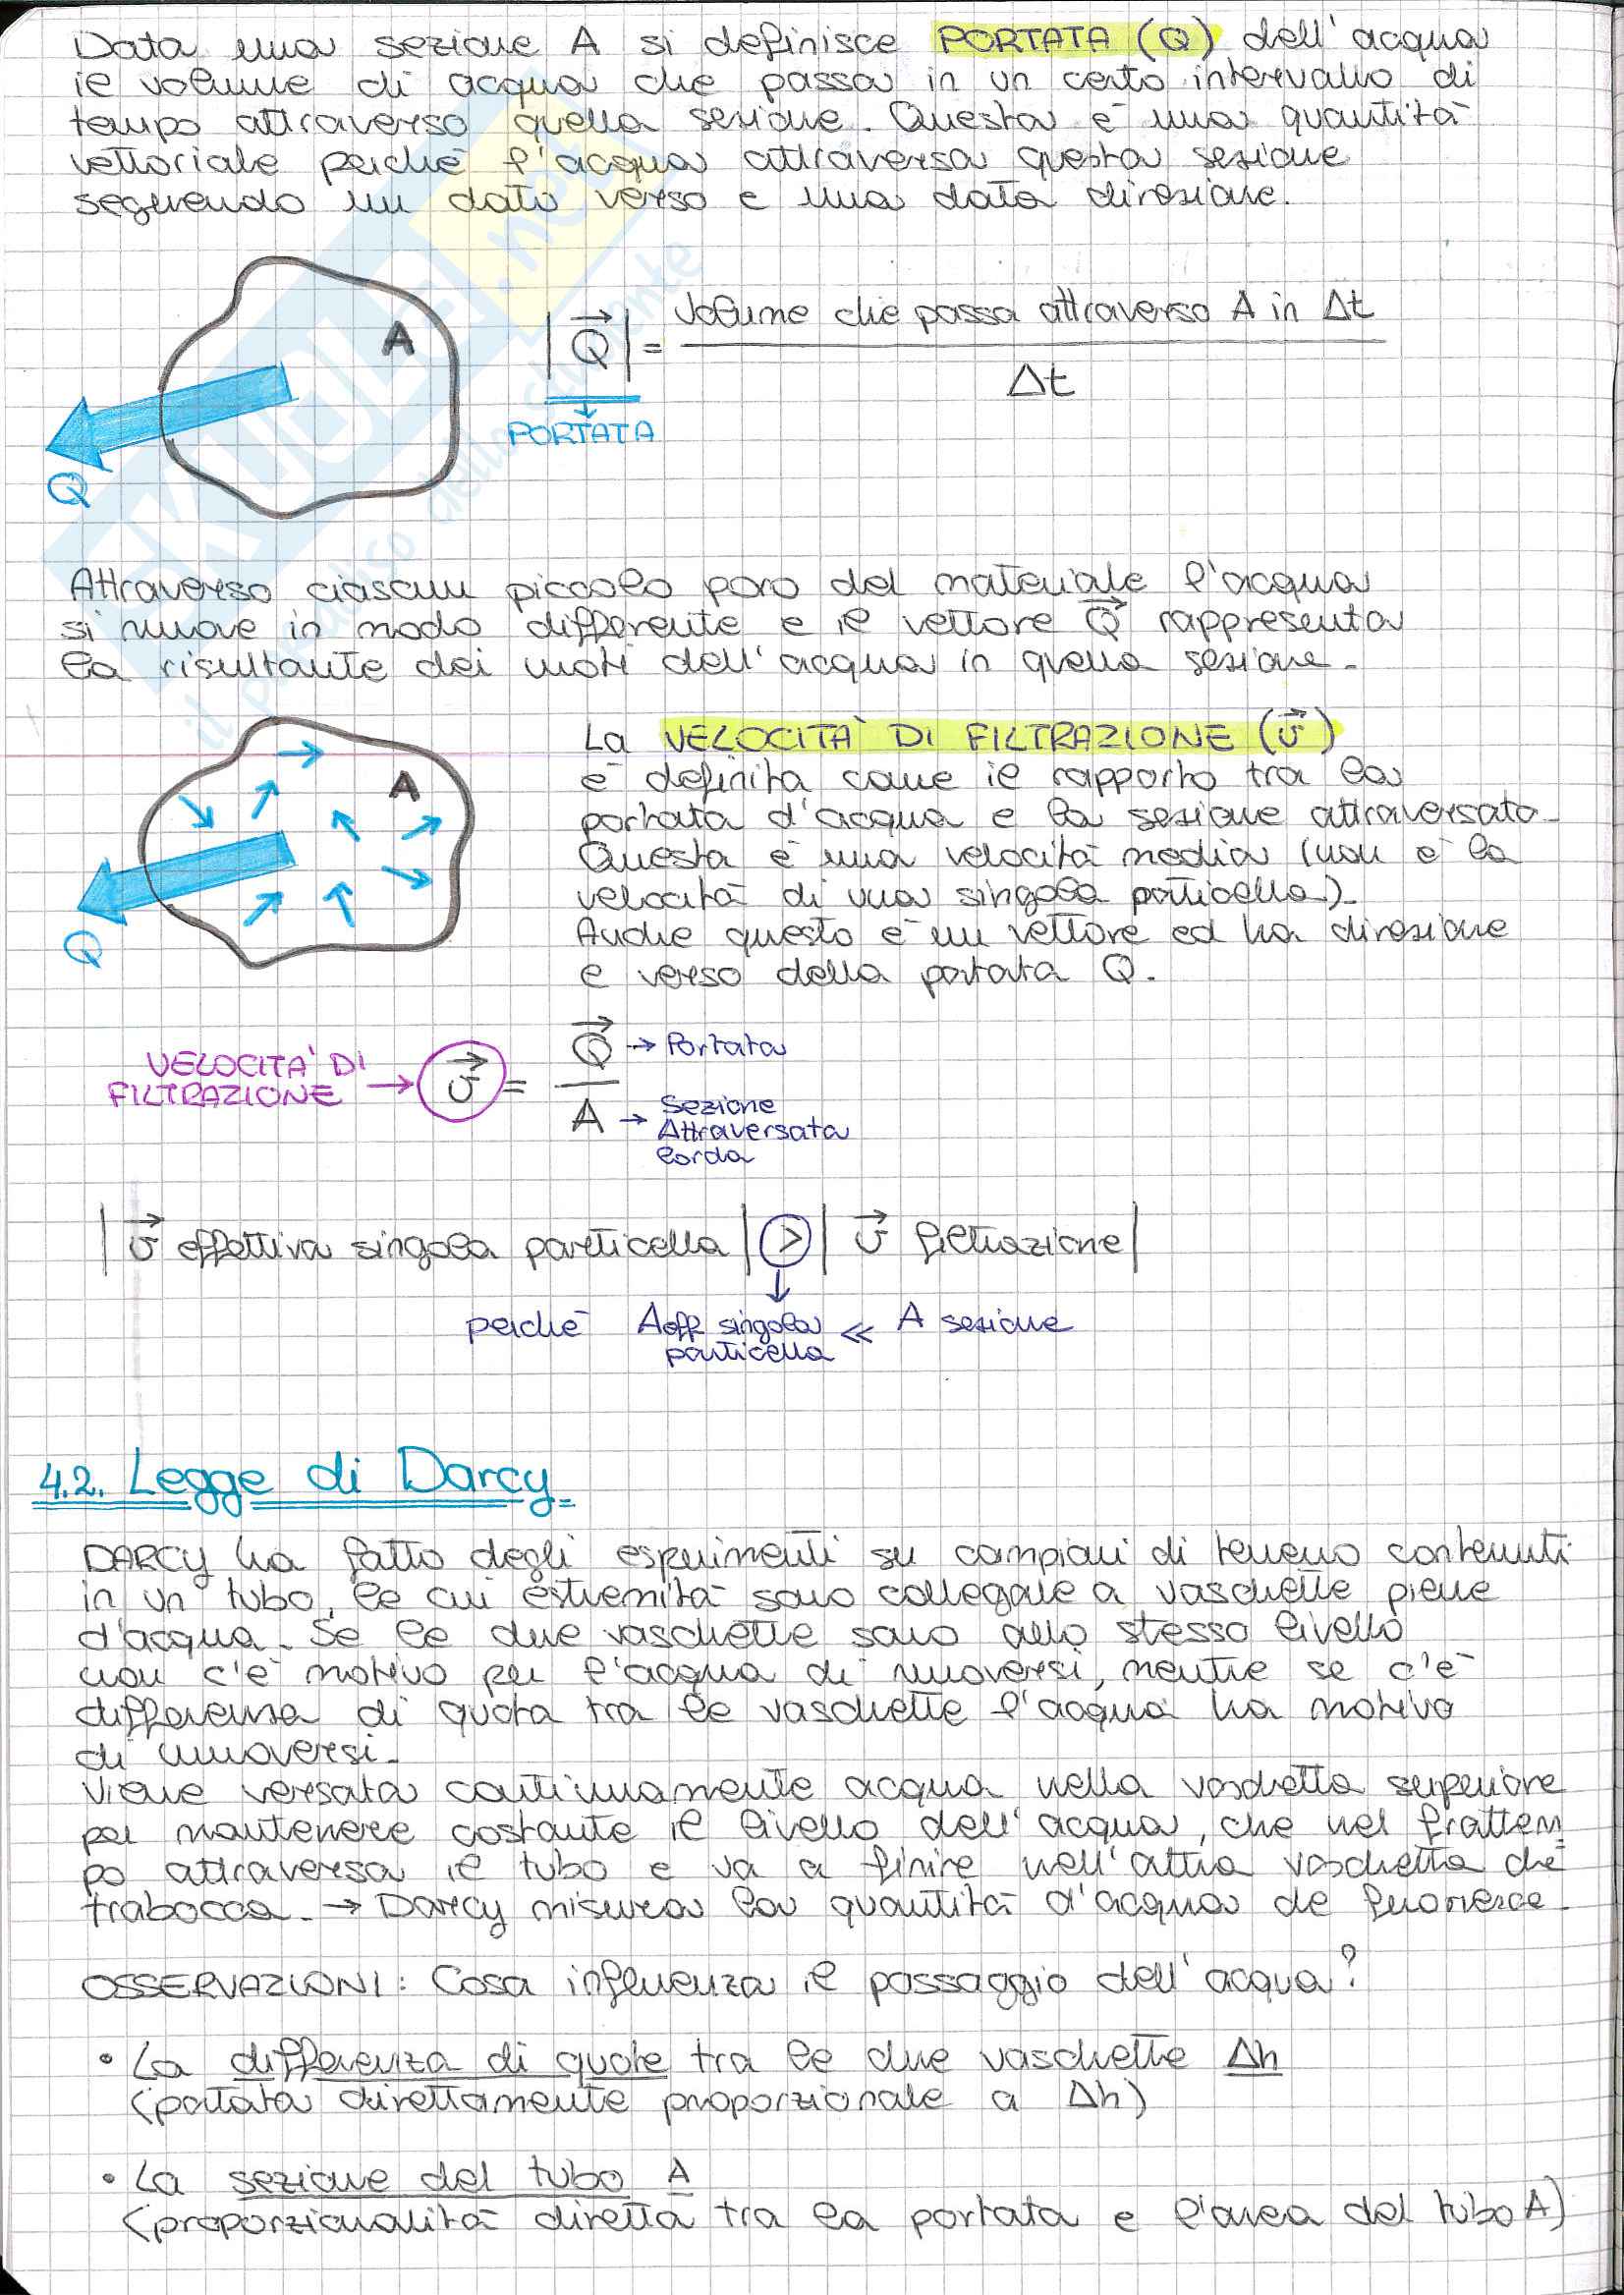 Data una sezione A si definisce PORTATA (Q) dell'acqua
il volume di acqua che passa in un certo intervallo di
tempo attraverso quella sezione. Questa è una quantità
vettoriale perchè l'acqua attraversa questa sezione
seguendo un dato verso e una data direzione.
A
|Q⃗| = Volume che passa attraverso A in Δt
Δt
PORTATA
Q
Attraverso ciascun piccolo poro del materiale l'acqua
si muove in modo differente e il vettore Q⃗ rappresenta
la risultante dei moti dell'acqua in quella sezione.
La VELOCITÀ DI FILTRAZIONE (v⃗)
è definita come il rapporto tra la
portata d'acqua e la sezione attraversata.
Questa è una velocità media (non è la
velocità di una singola particella).
Anche questo è un vettore ed ha direzione
e verso della portata Q.
A
Q
VELOCITÀ DI
FILTRAZIONE → v⃗ = Q⃗ → Portata
A → Sezione
Attraversata
lorda
|v⃗ effettiva singola particella| > |v⃗ filtrazione|
perchè Aeff singola << A sezione
particella
4.2. Legge di Darcy
DARCY ha fatto degli esperimenti su campioni di terreno contenuti
in un tubo, le cui estremità sono collegate a vaschette piene
d'acqua. Se le due vaschette sono allo stesso livello
non c'è motivo per l'acqua di muoversi, mentre se c'è
differenza di quota tra le vaschette l'acqua ha motivo
di muoversi.
Viene versata continuamente acqua nella vaschetta superiore
per mantenere costante il livello dell'acqua, che nel frattem
po attraversa il tubo e va a finire nell'altra vaschetta che
trabocca. → Darcy misura la quantità d'acqua che fuoriesce.
OSSERVAZIONI: Cosa influenza il passaggio dell'acqua?
• La differenza di quote tra le due vaschette Δh
(portata direttamente proporzionale a Δh)
• La sezione del tubo A
(proporzionalità diretta tra la portata e l'area del tubo A)